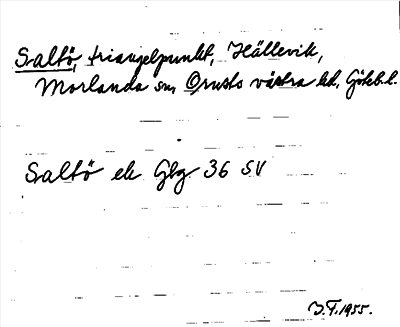 Saltö, triangelpunkt, Hällevik,
Morlanda sn, Orusts västra hd, Göteb.l.
Saltö ek Gbg 36 SV
J.F. 1955.